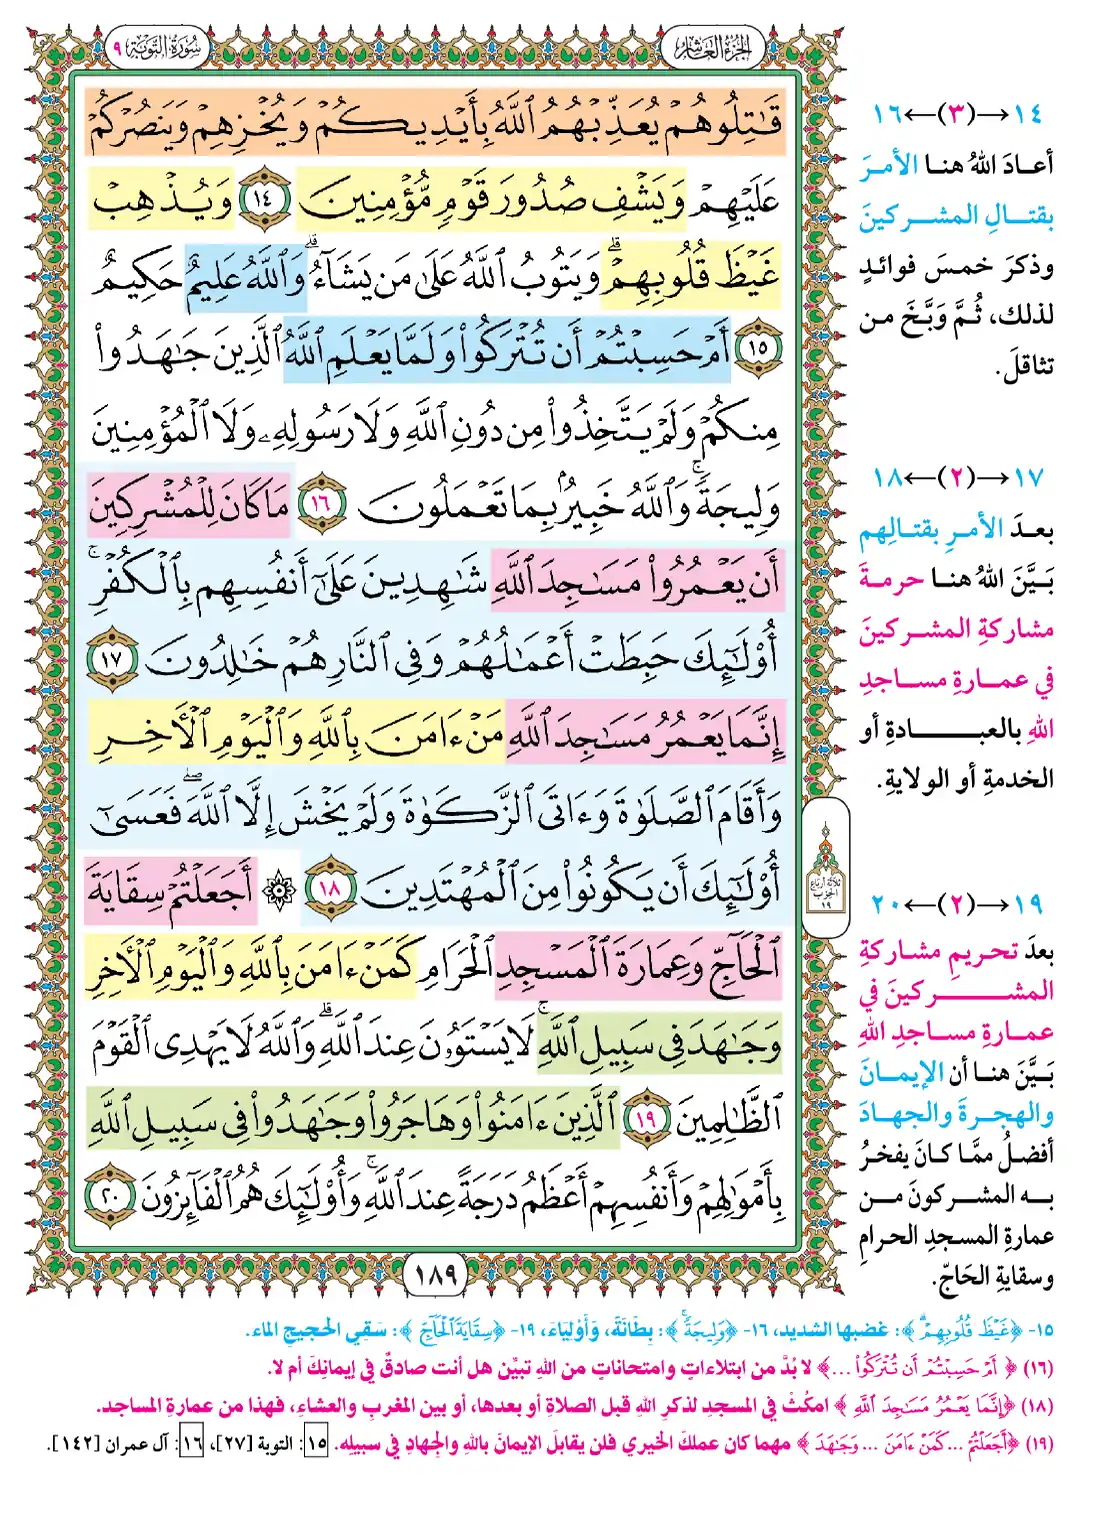 الجزء العاشر
سورة التوبة ٩
قَٰتِلُوهُمْ يُعَذِّبْهُمُ ٱللَّهُ بِأَيْدِيكُمْ وَيُخْزِهِمْ وَيَنصُرْكُمْ
عَلَيْهِمْ وَيَشْفِ صُدُورَ قَوْمٍ مُّؤْمِنِينَ ١٤ وَيُذْهِبْ
غَيْظَ قُلُوبِهِمْ ۗ وَيَتُوبُ ٱللَّهُ عَلَىٰ مَن يَشَآءُ ۗ وَٱللَّهُ عَلِيمٌ حَكِيمٌ
١٥ أَمْ حَسِبْتُمْ أَن تُتْرَكُوا۟ وَلَمَّا يَعْلَمِ ٱللَّهُ ٱلَّذِينَ جَٰهَدُوا۟
مِنكُمْ وَلَمْ يَتَّخِذُوا۟ مِن دُونِ ٱللَّهِ وَلَا رَسُولِهِۦ وَلَا ٱلْمُؤْمِنِينَ
وَلِيجَةً ۚ وَٱللَّهُ خَبِيرٌۢ بِمَا تَعْمَلُونَ ١٦ مَا كَانَ لِلْمُشْرِكِينَ
أَن يَعْمُرُوا۟ مَسَٰجِدَ ٱللَّهِ شَٰهِدِينَ عَلَىٰٓ أَنفُسِهِم بِٱلْكُفْرِ ۚ
أُو۟لَٰٓئِكَ حَبِطَتْ أَعْمَٰلُهُمْ وَفِى ٱلنَّارِ هُمْ خَٰلِدُونَ ١٧
إِنَّمَا يَعْمُرُ مَسَٰجِدَ ٱللَّهِ مَنْ ءَامَنَ بِٱللَّهِ وَٱلْيَوْمِ ٱلْءَاخِرِ
وَأَقَامَ ٱلصَّلَوٰةَ وَءَاتَى ٱلزَّكَوٰةَ وَلَمْ يَخْشَ إِلَّا ٱللَّهَ ۖ فَعَسَىٰٓ
أُو۟لَٰٓئِكَ أَن يَكُونُوا۟ مِنَ ٱلْمُهْتَدِينَ ١٨ ۞ أَجَعَلْتُمْ سِقَايَةَ
ٱلْحَآجِّ وَعِمَارَةَ ٱلْمَسْجِدِ ٱلْحَرَامِ كَمَنْ ءَامَنَ بِٱللَّهِ وَٱلْيَوْمِ ٱلْءَاخِرِ
وَجَٰهَدَ فِى سَبِيلِ ٱللَّهِ ۚ لَا يَسْتَوُۥنَ عِندَ ٱللَّهِ ۗ وَٱللَّهُ لَا يَهْدِى ٱلْقَوْمَ
ٱلظَّٰلِمِينَ ١٩ ٱلَّذِينَ ءَامَنُوا۟ وَهَاجَرُوا۟ وَجَٰهَدُوا۟ فِى سَبِيلِ ٱللَّهِ
بِأَمْوَٰلِهِمْ وَأَنفُسِهِمْ أَعْظَمُ دَرَجَةً عِندَ ٱللَّهِ ۚ وَأُو۟لَٰٓئِكَ هُمُ ٱلْفَآئِزُونَ ٢٠
١٨٩
١٤→(٣)←١٦
أعادَ اللهُ هنا الأمرَ
بقتالِ المشركينَ
وذكرَ خمسَ فوائدٍ
لذلك، ثُمَّ وَبَّخَ من
تثاقلَ.
١٧→(٢)←١٨
بعدَ الأمرِ بقتالِهم
بَيَّنَ اللهُ هنا حرمةَ
مشاركةِ المشركينَ
في عمارةِ مساجدِ
اللهِ بالعبادةِ أو
الخدمةِ أو الولايةِ.
ثلاثة أرباع
الحزب
١٩
١٩→(٢)←٢٠
بعدَ تحريمِ مشاركةِ
المشركينَ في
عمارةِ مساجدِ اللهِ
بَيَّنَ هنا أن الإيمانَ
والهجرةَ والجهادَ
أفضلُ ممَّا كانَ يفخرُ
به المشركونَ من
عمارةِ المسجدِ الحرامِ
وسقايةِ الحَاجِّ.
١٥- ﴿غَيْظَ قُلُوبِهِمْ ۗ﴾: غضبها الشديد، ١٦- ﴿وَلِيجَةً ۚ﴾: بِطَانَةً، وَأَوْلِيَاءَ، ١٩- ﴿سِقَايَةَ ٱلْحَآجِّ﴾: سَقِي الحجيجِ الماء.
(١٦) ﴿أَمْ حَسِبْتُمْ أَن تُتْرَكُوا۟ ...﴾ لا بُدَّ من ابتلاءاتٍ وامتحاناتٍ من اللهِ تبيِّن هل أنت صادقٌ في إيمانِكَ أم لا.
(١٨) ﴿إِنَّمَا يَعْمُرُ مَسَٰجِدَ ٱللَّهِ﴾ امكُثْ في المسجدِ لذكرِ اللهِ قبل الصلاةِ أو بعدها، أو بين المغربِ والعشاءِ، فهذا من عمارةِ المساجد.
(١٩) ﴿أَجَعَلْتُمْ ... كَمَنْ ءَامَنَ ... وَجَٰهَدَ﴾ مهما كان عملكَ الخيري فلن يقابلَ الإيمانَ باللهِ والجهادِ في سبيلِه. ١٥: التوبة [٢٧]، ١٦: آل عمران [١٤٢].